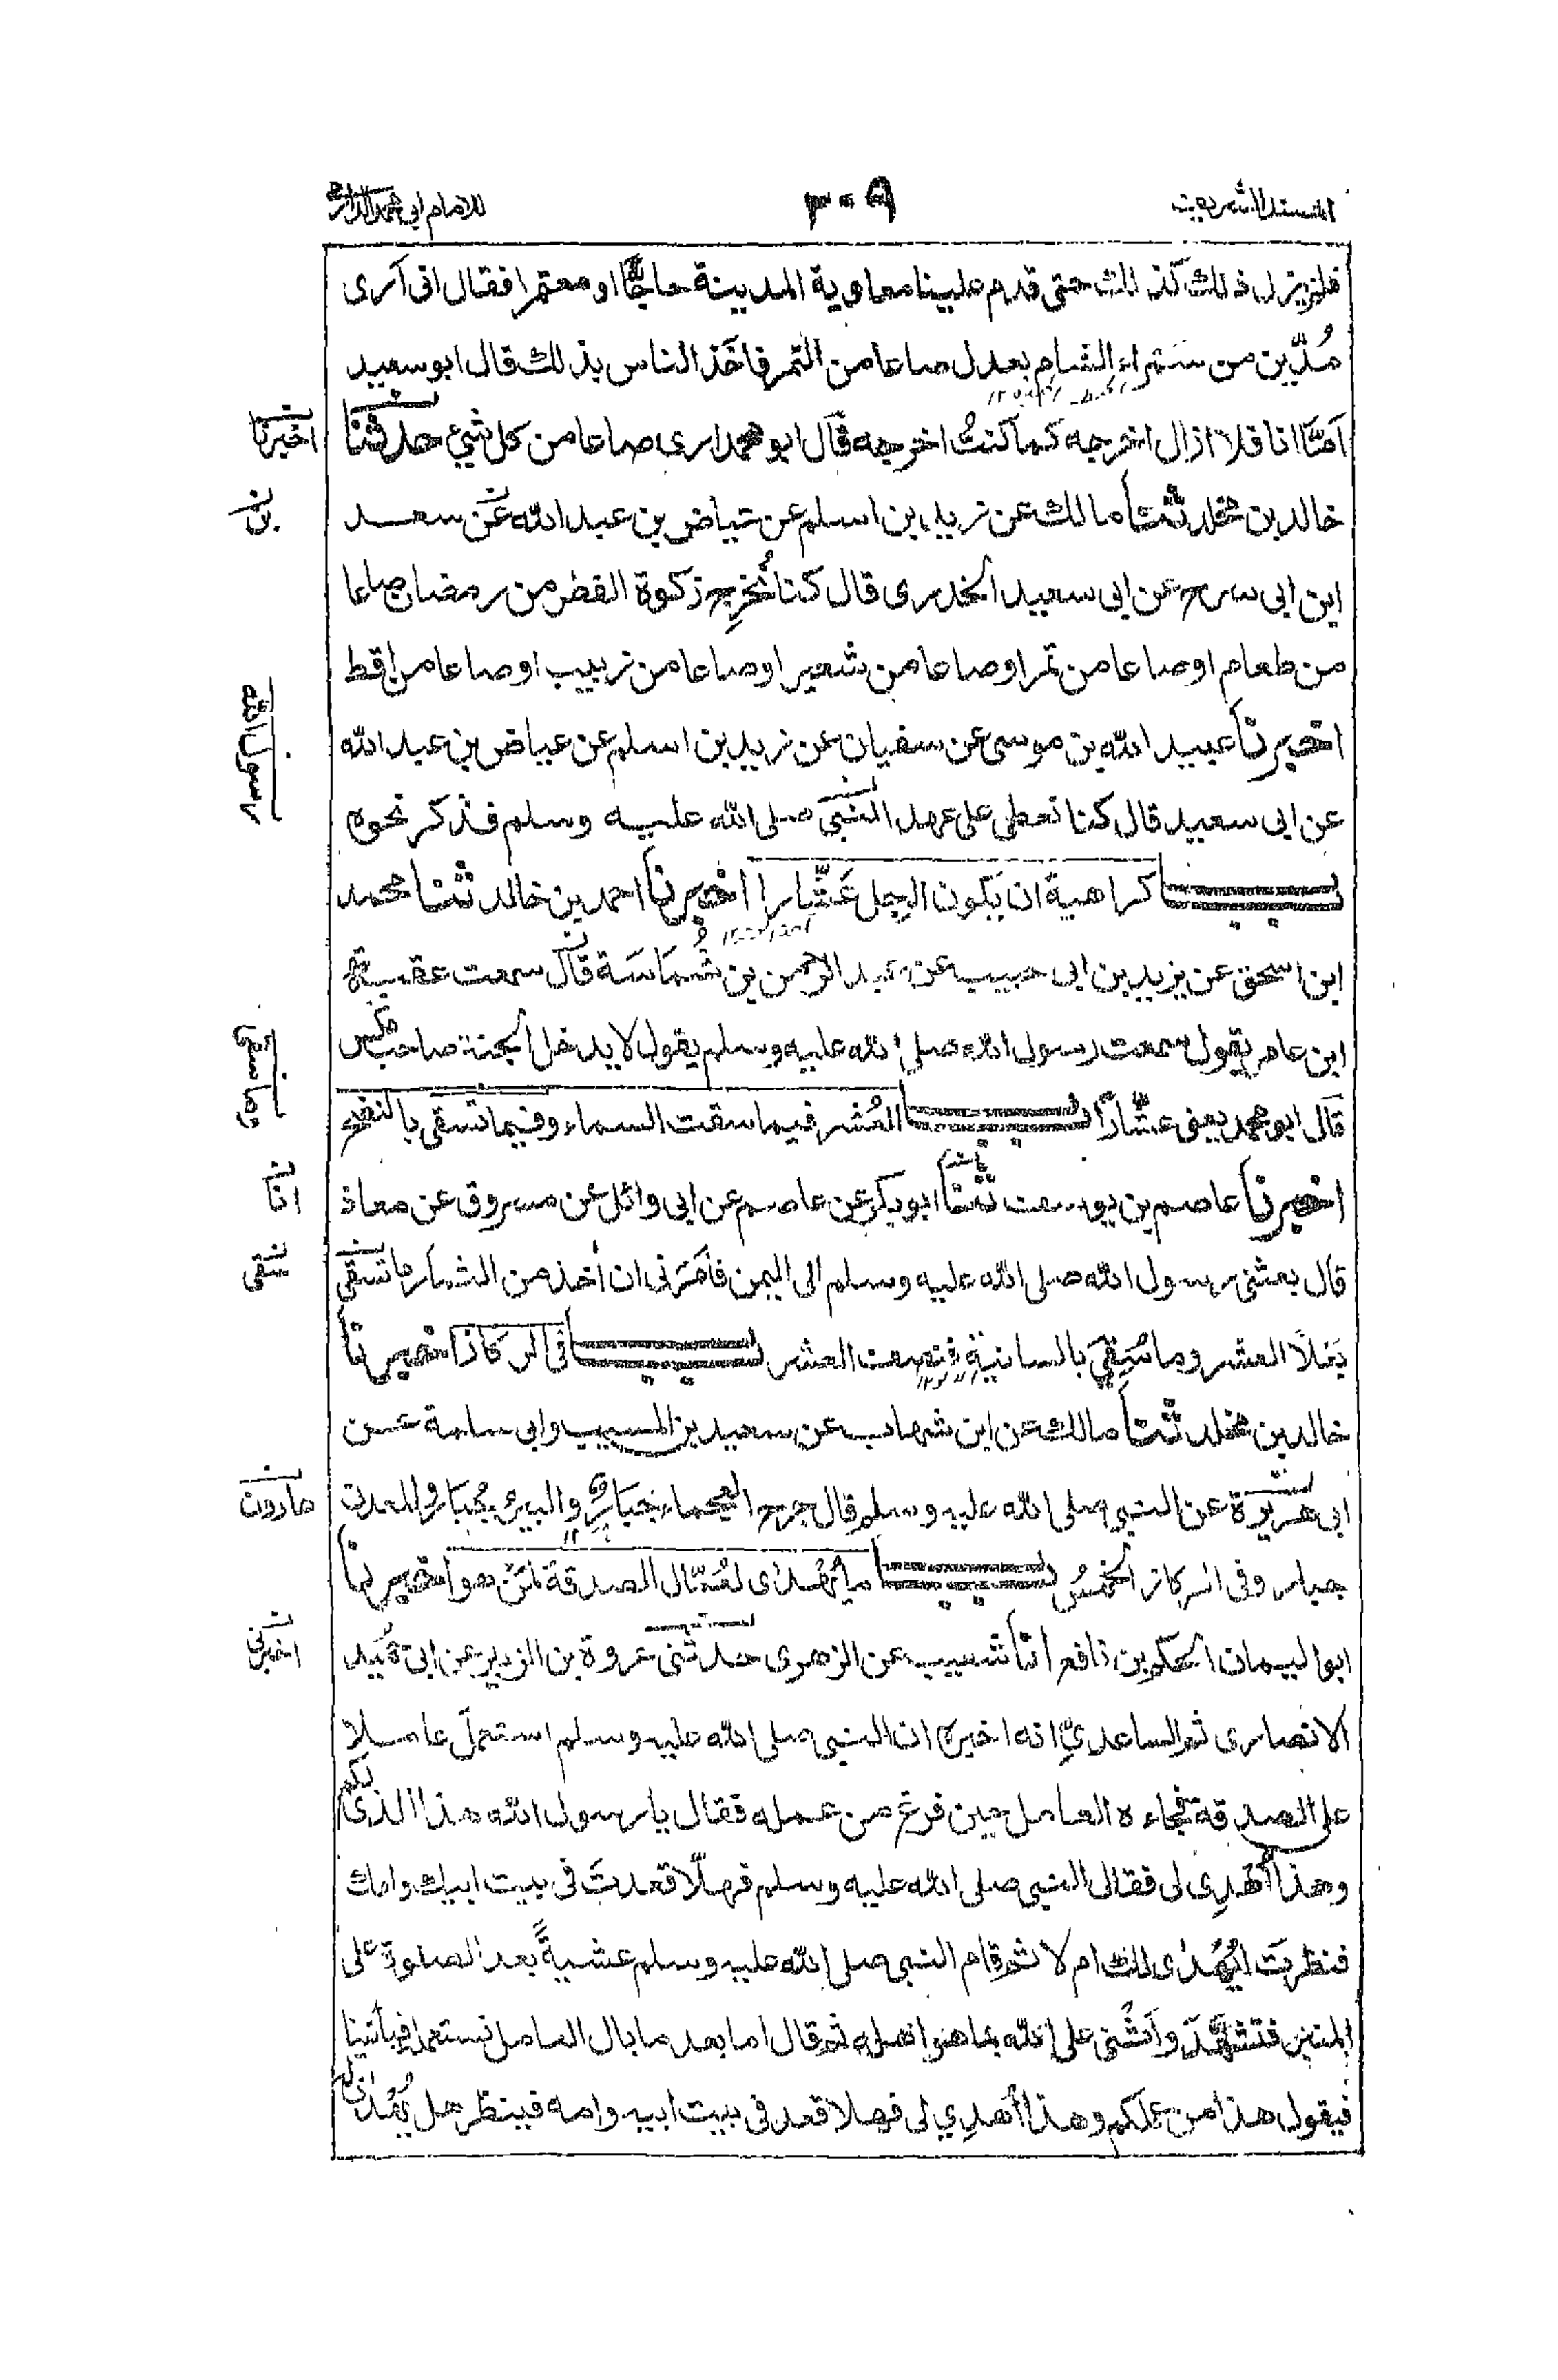 المسند الشريف
٢٠٩
للامام ابى محمد الدارمى
فلم يزل ذلك كذلك حتى قدم علينا معاوية المدينة حاجًّا او معتمرا فقال انى آرى
مُدّين من سَمراءِ الشامِ بعدل صاعا من التمر فاخَذ الناس بذلك قال ابو سعيد
اَمَّا انا فلا ازال اخرجه كما كنتُ اخرجه قال ابو محمد ارى صاعا من كل شئ حدثنا
اخبرنا
خالد بن مخلد ثنا مالك عن زيد بن اسلم عن عياض بن عبد الله عن سعد
بن
ابن ابى سرح عن ابى سعيد الخدرى قال كنا نُخرِج زكوة الفطر من رمضان صاعا
من طعام او صاعا من تمر او صاعا من شعير او صاعا من زبيب او صاعا من اقط
اخبرنا عبيد الله بن موسى عن سفيان عن زيد بن اسلم عن عياض بن عبد الله
رسول الله
عن ابى سعيد قال كنا نعطى على عهد النبى صلى الله عليه وسلم فذكر نحوه
باب كراهية ان يكون الرجل عَشّارا اخبرنا احمد بن خالد ثنا محمد
ابن اسحق عن يزيد بن ابى حبيب عن عبد الرحمن بن شُمَاسَة قال سمعت عقبة
ابن عامر يقول سمعت رسول الله صلى الله عليه وسلم يقول لا يدخل الجنة صاحب مكس
قال ابو محمد يعنى عشّارًا باب العُشر فيما سقت السماء وفيما تسقى بالنضح
اخبرنا عاصم بن يوسف ثنا ابو بكر عن عاصم عن ابى وائل عن مسروق عن معاذ
انا
قال بعثنى رسول الله صلى الله عليه وسلم الى اليمن فأمَرنى ان أخذ من الثمار ما تسقى
يسقى
بَعْلًا العشر وما سُقِىَ بالسانيةِ فنصف العشر باب فى الركاز اخبرنا
خالد بن مخلد ثنا مالك عن ابن شهاب عن سعيد بن المسيب وابى سلمة عن
ابى هريرة عن النبى صلى الله عليه وسلم قال جرح العجماء جُبَارٌ والبير جُبَار والمعدن
جبار وفى الركاز الخمسُ باب ما يُهْدٰى لعُمّال الصدقة لمَنْ هو اخبرنا
ابو اليمان الحكم بن نافع انا شعيب عن الزهرى حدثنى عروة بن الزبير عن ابى حُمَيد
اخبرنى
الانصارى ثم الساعدىِّ انه اخبره ان النبى صلى الله عليه وسلم استعمل عاملا
على الصدقة فجاءه العامل حين فرغ من عمله فقال يا رسول الله هذا الذى لكم
وهذا اُهْدِى لى فقال النبى صلى الله عليه وسلم فهلّا قعدتَ فى بيت ابيك وامك
فنظرتَ ايُهْدٰى لك ام لا ثم قام النبى صلى الله عليه وسلم عشيةً بعد الصلوة على
المنبر فتشهّدَ وأثنى على الله بما هو اهله ثم قال اما بعد ما بال العامل نستعمله فيأتينا
فيقول هذا من عملكم وهذا أُهدِي لى فهلا قعد فى بيت ابيه وامه فينظر هل يُهْدٰى له